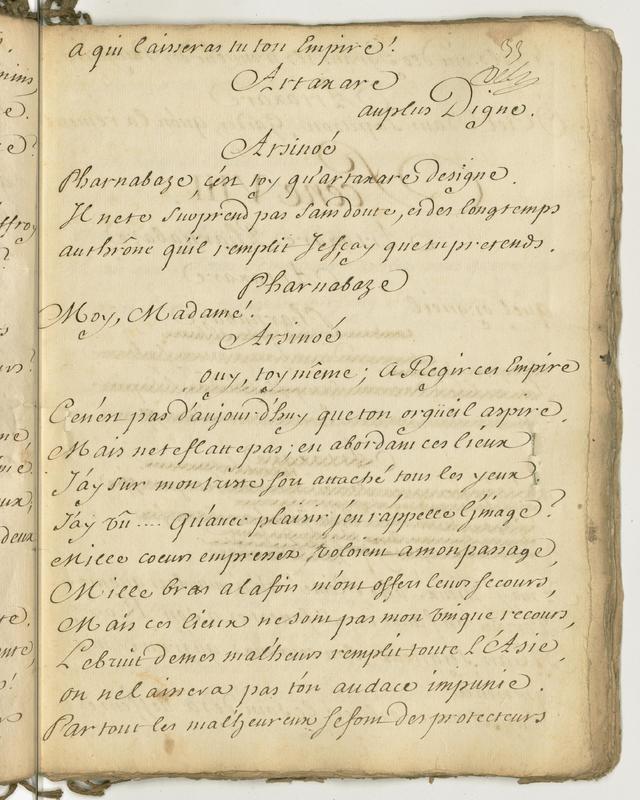 A qui laisseras tu ton Empire!
33
Artaxare
au plus Digne.
Arsinoé
Pharnabaze, c'ést toy qu'artaxare designe.
Il ne te surprend pas sans doute, et des longtemps
au thrône qu'il remplit Je sçay que tu pretends.
Pharnabaze
Moy, Madame!
Arsinoé
ouy, toy même; A Regir cet Empire
Ce n'ést pas d'aujourd'huy que ton orgüeil aspire,
Mais ne te flatte pas; en abordant ces lieux
J'ay sur mon triste sort attaché tous les yeux
J'ay vû .... Qu'avec plaisir j'en r'appelle L'jmage?
Mille coeurs empressez voloient a mon passage,
Mille bras a la fois m'ont offert leurs secours,
Mais ces lieux ne sont pas mon vnique recours,
Le bruit de mes malheurs remplit toute L'Asie,
on ne laissera pas ton audace impunie.
Par tout les malheureux se font des protecteurs